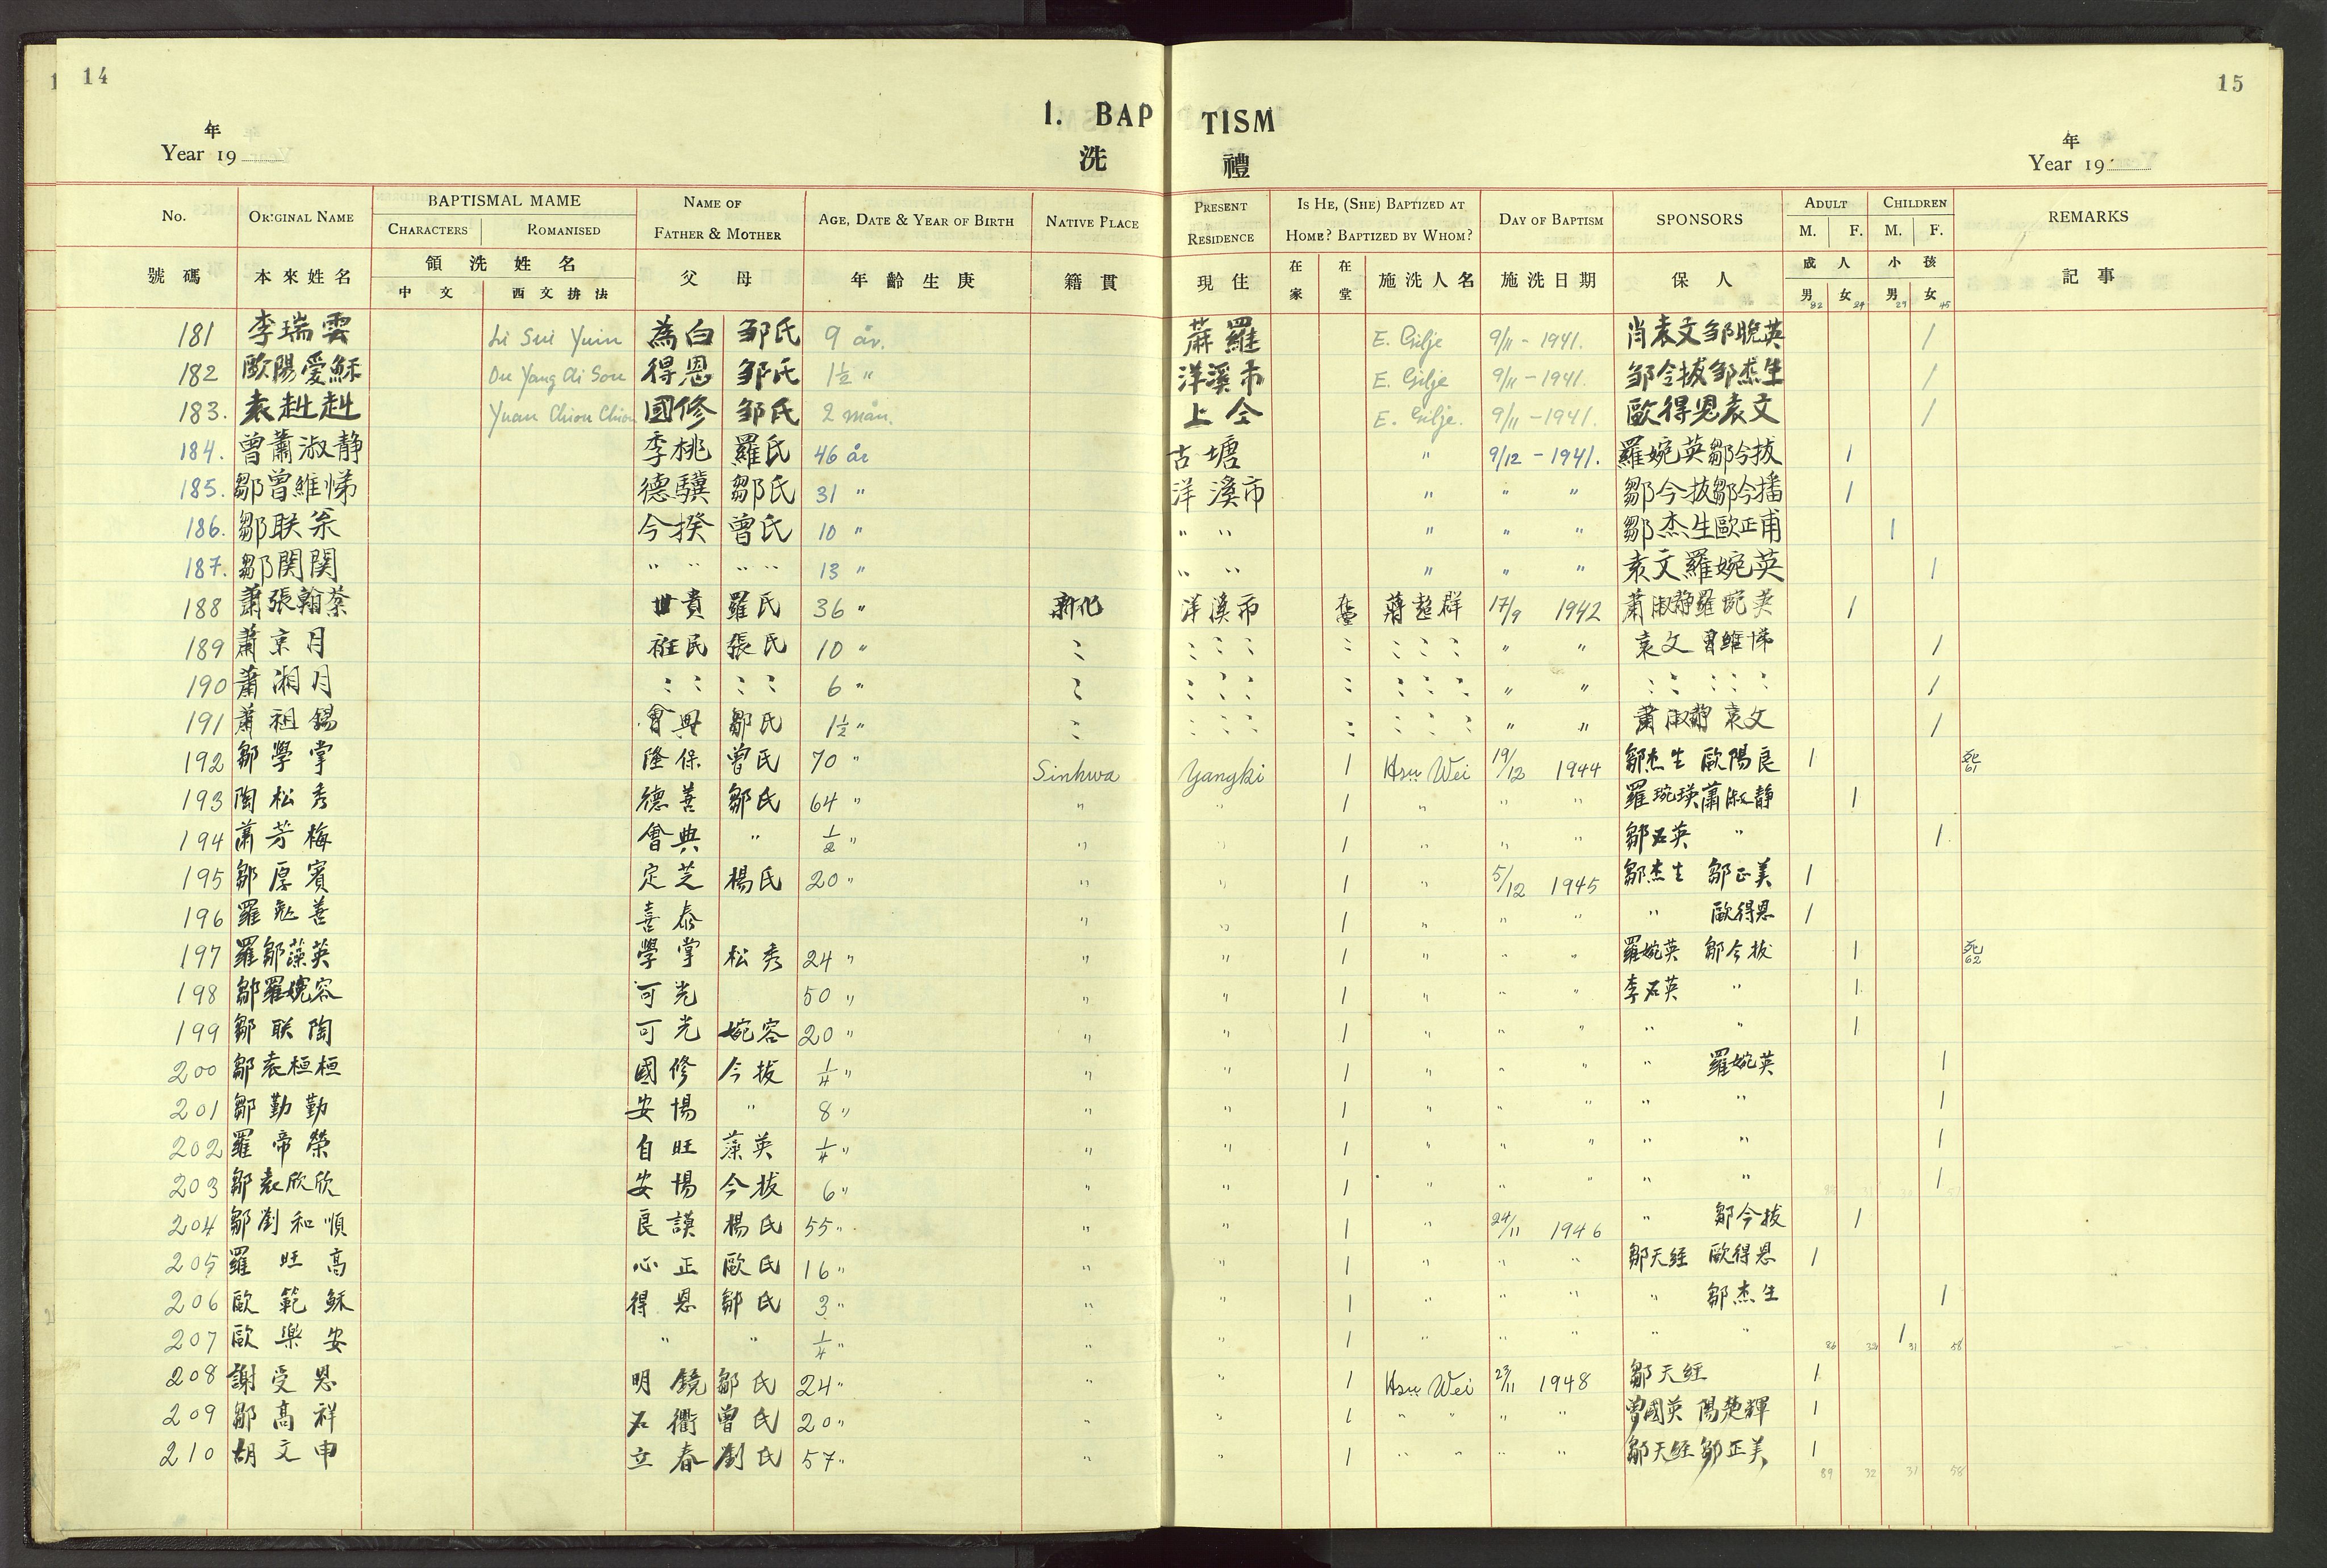 14
15
1. BAP TISM
洗 禮
年
Year 19
年
Year 19
No. ORIGINAL NAME BAPTISMAL MAME NAME OF FATHER & MOTHER AGE, DATE & YEAR OF BIRTH NATIVE PLACE PRESENT RESIDENCE IS HE, (SHE) BAPTIZED AT HOME? BAPTIZED BY WHOM? DAY OF BAPTISM SPONSORS ADULT CHILDREN REMARKS
CHARACTERS ROMANISED M. F. M. F.
號碼 本來姓名 領洗姓名 父 母 年齡生庚 籍貫 現住 在家 在堂 施洗人名 施洗日期 保人 成人 小孩 記事
中文 西文拚法 男 82 女 24 男 29 女 45
181 李瑞雲 Li Sui Yuin 為白 邹氏 9 år. 蔴羅 E. Gilje 9/11 - 1941. 肖袁文 邹晚英 1
182 歐陽愛穌 Ou Yang Ai Sou 得恩 邹氏 1½ " 洋溪市 E. Gilje 9/11 - 1941. 邹今拔 邹杰生 1
183. 袁赳赳 Yuan Chiou Chiou 國修 邹氏 2 mån. 上仝 E. Gilje. 9/11 - 1941. 歐得恩 袁文 1
184. 曾蕭淑静 季桃 羅氏 46 år 古塘 " 9/12 - 1941. 羅婉英 鄒今拔 1
185. 鄒曾維悌 德驥 鄒氏 31 " 洋溪市 " " " 鄒今拔 鄒今播 1
186. 鄒联 今揆 曾氏 10 " " " " " " 鄒杰生 歐正甫 1
187. 鄒関関 " " " " 13 " " " " " " 袁文 羅婉英 1
188 蕭張翰 世貴 羅氏 36 " 新化 洋溪市 在堂 蔣超群 17/9 1942 蕭淑静 羅婉英 1
189 蕭京月 祚民 張氏 10 " " " " " " " " " " " 袁文 曾維悌 1
190 蕭湘月 " " " " 6 " " " " " " " " " " " " " " " " 1
191 蕭祖錫 會典 鄒氏 1½ " " " " " " " " " " " 蕭淑静 袁文 1
192 鄒學掌 隆保 曾氏 70 " Sinhwa Yangki 1 Hsü Wei 19/12 1944 鄒杰生 歐陽良 1 死 61
193 陶松秀 德善 鄒氏 64 " " " 1 " " " 羅琬瑛 蕭淑静 1
194 蕭芳梅 會典 " ½ " " " 1 " " " 鄒名英 " 1
195 鄒厚賓 定芝 楊氏 20 " " " 1 " 5/12 1945 鄒杰生 鄒正美 1
196 羅勉善 喜泰 " " 1 " " " " 歐得恩 1
197 羅鄒藻英 學掌 松秀 24 " " " 1 " " " 羅婉英 鄒今拔 1 死 62
198 鄒羅婉容 可光 50 " " " 1 " " " 李名英 " 1
199 鄒联陶 可光 婉容 20 " " " 1 " " " " " 1
200 鄒袁桓桓 國修 今拔 ¼ " " " 1 " " " " 羅婉英 1
201 鄒勤勤 安場 " 8 " " " 1 " " " " " 1
202 羅帝榮 自旺 藻英 ¼ " " " 1 " " " " " 1
203 鄒袁欣欣 安場 今拔 6 " " " 1 " " " " " 1
204 鄒劉和順 良謨 楊氏 55 " " " 1 " 24/11 1946 " 鄒今拔 1
205 羅旺高 心正 歐氏 16 " " " 1 " " " 鄒天經 歐得恩 1
206 歐範穌 得恩 鄒氏 3 " " " 1 " " " " 鄒杰生 1
207 歐樂安 " " ¼ " " " 1 " " " " " 1
86 32 31 58
208 謝受恩 明鏡 鄒氏 24 " " " 1 Hsü Wei 23/11 1948 鄒天經 1
209 鄒高祥 名衢 曾氏 20 " " " 1 " " " " 曾國英 陽楚輝 1
210 胡文申 立春 劉氏 57 " " " 1 " " " " 鄒天經 鄒正美 1
89 32 31 58